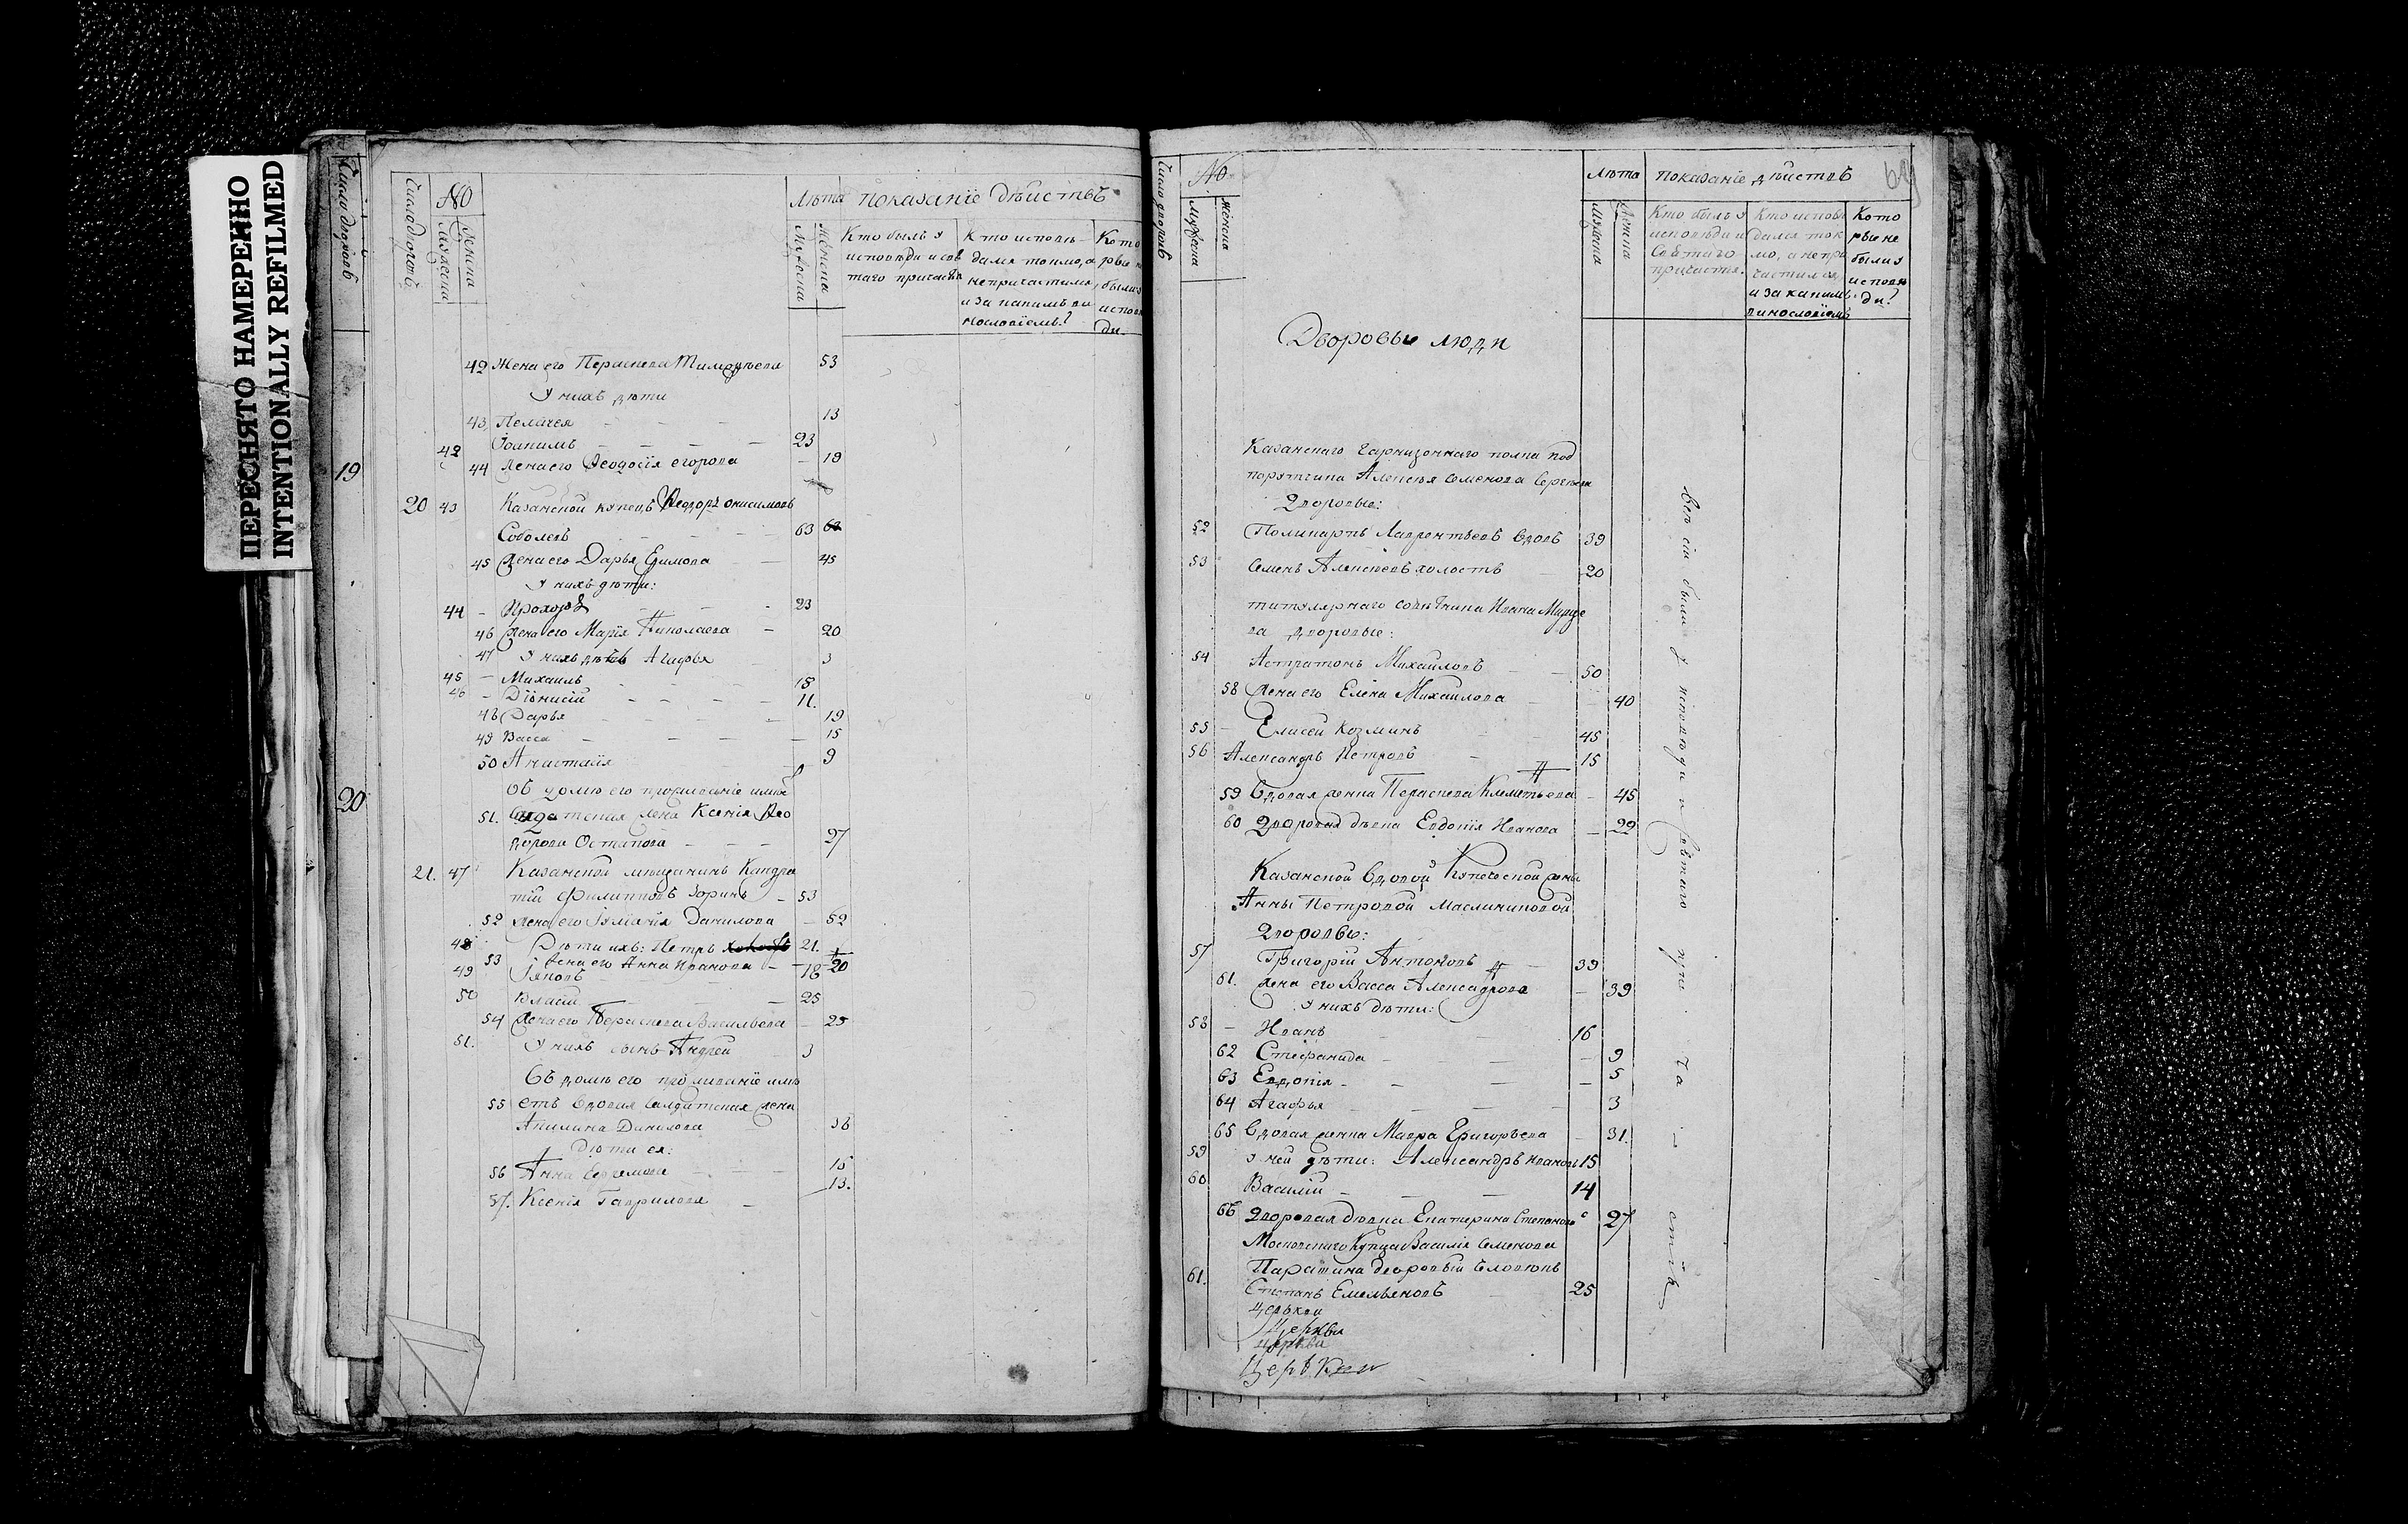 ПЕРЕСНЯТО НАМЕРЕННО
INTENTIONALLY REFILMED
Число дворовъ
19
20
Число дворовъ
№
Мужеска
Женска
Лѣта
Мужеска
Женска
Показаніе дѣиствъ
Кто былъ у исповѣди и свя таго причастія
Кто исповѣ дался токмо, а непричастился и за какимъ ви нословіемъ?
Кото рые не были у исповѣ ди.
42 Жена его Параскева Тимофѣева 53
У нихъ дѣти
43 Пелагея 13
42 Іоакимъ 23
44 Жена его Феодосія егорова 19
20 43 Казанской купецъ Феодоръ онисимовъ
Соболевъ 63
45 Жена его Дарья Ефимова 45
У нихъ дѣти:
44 Прохоръ 23
46 Жена его Марія Николаева 20
47 У нихъ дѣти Агафья 3
45 Михаилъ 18
46 Діонисій 11.
48 Дарья 19
49 Васса 15
50 Анастасія 9
Въ домѣ его проживаніе имѣе
51. Салдатская жена Ксенія Фео
дорова Остапова 27
21. 47 Казанской мѣщанинъ Кандра
тій Филипповъ Зоринъ 53
52 Жена его Іуліанія Данилова 52
48 Дѣти ихъ: Петръ 21.
53 Жена его Анна Иванова 20
49 Іяковъ 18
50 Власій 25
54 Жена его Параскева Васильева 25
51. У нихъ сынъ Андрей 3
Въ домѣ его проживаніе имѣ
55 етъ вдовая салдатская жена
Акилина Данилова 36
Дѣти ея:
56 Анна Ефремова 15
57. Ксенія Гаврилова 13.
Число дворовъ
№
Мужеска
Женска
Лѣта
Мужеска
Женска
Показаніе дѣиствъ
Кто былъ у исповѣди и Святаго причастія.
Кто исповѣ дался ток мо, а непри частился и за какимъ винословіемъ
Кото рые не были у исповѣ ди?
Дворовые люди
Казанскаго Гарнизоннаго полка под
порутчика Алексѣя Семенова Сергѣева
Дворовые:
52 Поликарпъ Лаврентьевъ вдовъ 39
53 Семенъ Алексѣевъ холостъ 20
титулярнаго совѣтника Ивана
ва дворовые:
54 Астратонъ Михаиловъ 50
58 Жена его Елена Михаилова 40
55 Елисей Козминъ 45
56 Александръ Петровъ 15
59 Вдовая женка Параскева Клементьева 45
60 Дворовая дѣвка Евдокія Иванова 29
Казанской вдовой Купеческой жены
Анны Петровой Маслениковой
Дворовые:
57 Григорій Антоновъ 39
61. Жена его Васса Александрова 39
У нихъ дѣти:
58 Иванъ 16
62 Стефанида 9
63 Евдокія 5
64 Агафья 3
65 Вдовая женка Мавра Григорьева 31.
59 У ней дѣти: Александръ Ивановъ 15
60 Василій 14
66 Дворовая дѣвка Екатерина Степанова 27
Московскаго Купца Василія Семенова
Паратина дворовый человѣкъ
61. Степанъ Емельяновъ 25
Церькви
Церкви
церкви
Церькви
Всѣ сіи были у исповѣди и святаго причастія